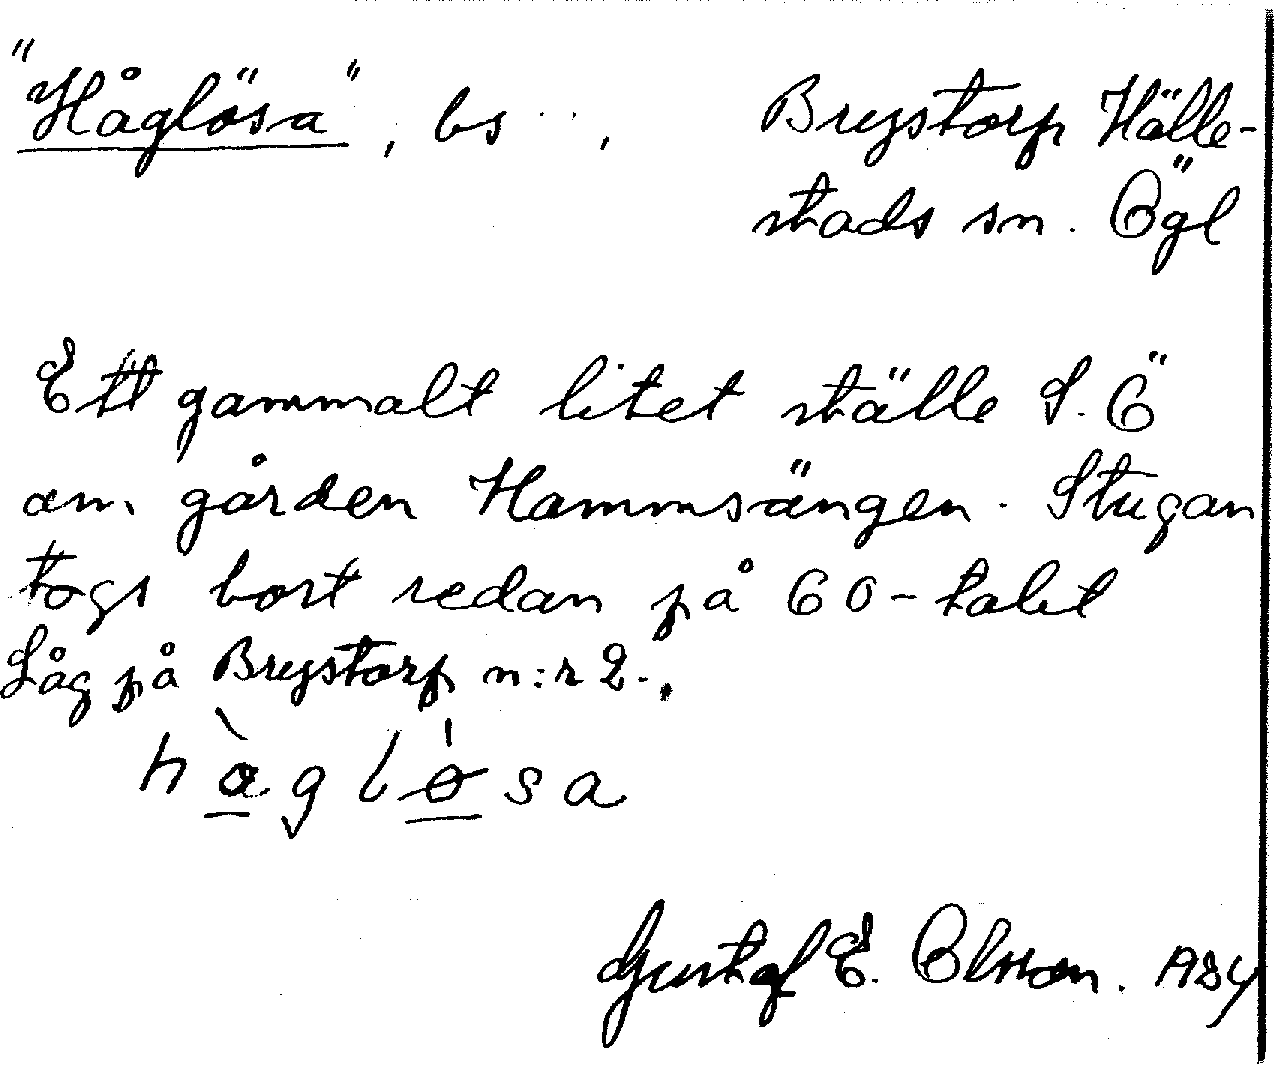 "Håglösa", bs , Brystorp Hälle-
stads sn. Ögl
Ett gammalt litet ställe S. Ö
om gården Hammsängen. Stugan
togs bort redan på 60-talet
Låg på Brystorp n:r 2.
hàgløsa
Gustaf E. Olsson.